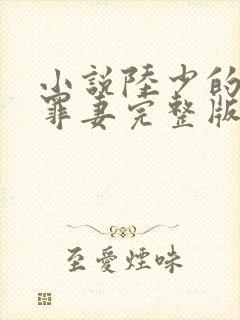 小說陸少的
罪妻完整版
至愛煙味